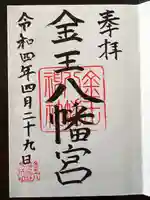 奉拝
金王八幡宮
令和四年四月二十九日